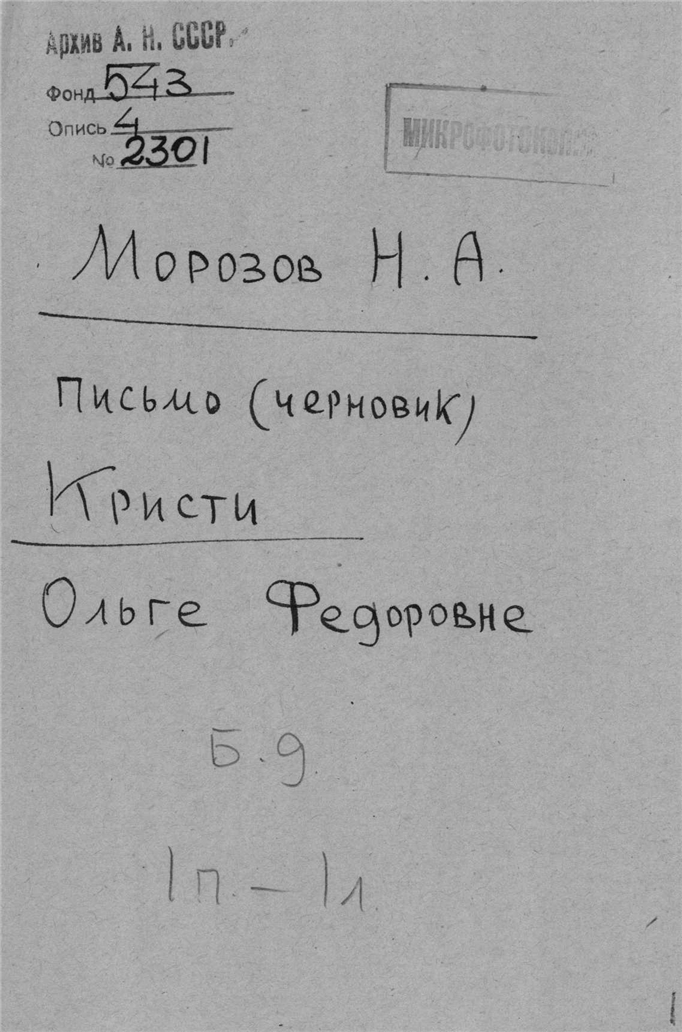 Архив А. Н. СССР.
Фонд 543
Опись 4
№ 2301
МИКРОФОТОКОПИЯ
Морозов Н. А.
Письмо (черновик)
Кристи
Ольге Федоровне
Б.д.
1п. – 1л.
1